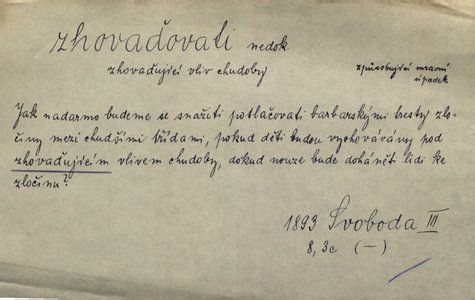 zhovaďovati nedok.
zhovaďující vliv chudoby
způsobující mravní
úpadek
Jak nadarmo budeme se snažiti potlačovati barbarskými tresty zlo-
činy mezi chudšími třídami, pokud děti budou vychovávány pod
zhovaďujícím vlivem chudoby, dokud nouze bude doháněti lidi ke
zločinu?
1893 Svoboda III
8, 3c (-)